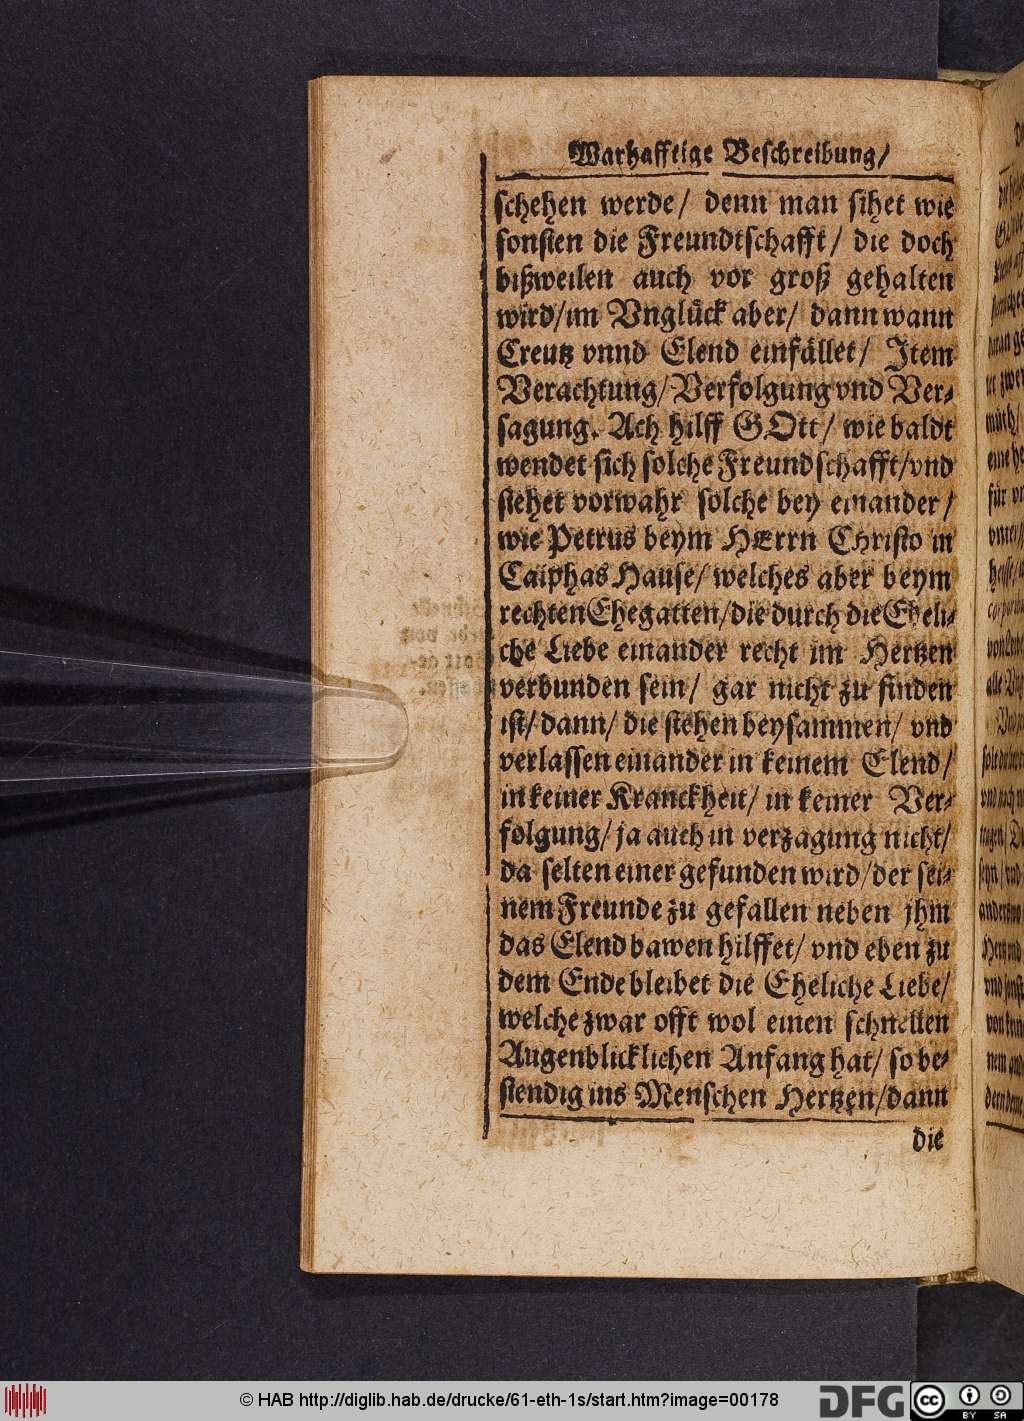 Warhafftige Beschreibung/
schehen werde/ denn man sihet wie
sonsten die Freundtschafft/ die doch
bißweilen auch vor groß gehalten
wird/im Vnglück aber/ dann wann
Creutz vnnd Elend einfället/ Item
Verachtung/Verfolgung vnd Ver-
sagung. Ach hilff GOtt/ wie baldt
wendet sich solche Freundschafft/vnd
stehet vorwahr solche bey einander/
wie Petrus beym HErrn Christo in
Caiphas Hause/ welches aber beym
rechten Ehegatten/die durch die Eheli-
che Liebe einander recht im Hertzen
verbunden sein/ gar nicht zu finden
ist/ dann/ die stehen beysammen/ vnd
verlassen einander in keinem Elend/
in keiner Kranckheit/ in keiner Ver-
folgung/ ja auch in verzagung nicht/
da selten einer gefunden wird/der sei-
nem Freunde zu gefallen neben jhm
das Elend bawen hilffet/ vnd eben zu
dem Ende bleibet die Eheliche Liebe/
welche zwar offt wol einen schnellen
Augenblicklichen Anfang hat/ so be-
stendig ins Menschen Hertzen/dann
die
© HAB http://diglib.hab.de/drucke/61-eth-1s/start.htm?image=00178
DFG
cc BY SA